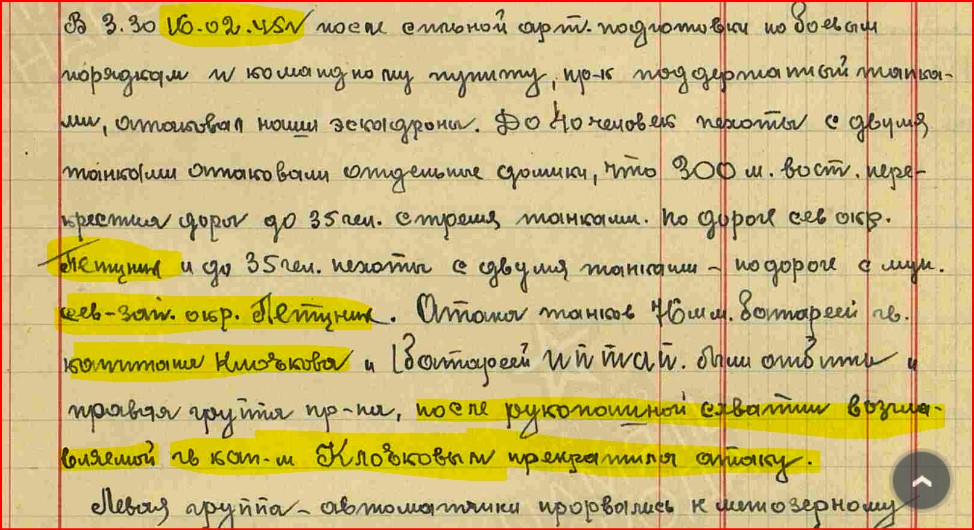 В 3.30 16.02.45г после сильной арт. подготовки по боевым
порядкам и командному пункту, пр-к поддержанный танка-
ми, атаковал наши эскадроны. До 40 человек пехоты с двумя
танками атаковали отдельные домики, что 300 м. вост. пере-
крестия дорог до 35 чел. с тремя танками. по дороге сев окр.
Петуник и до 35 чел. пехоты с двумя танками - по дороге с
сев-зап. окр. Петуник. Атака танков 76мм. батареей гв.
капитана Клочкова и батареей были отбиты и
правая группа пр-ка, после рукопашной схватки возгла-
вляемой гв кап-м Клочковым прекратила атаку.
Левая группа - автоматчики прорвались к